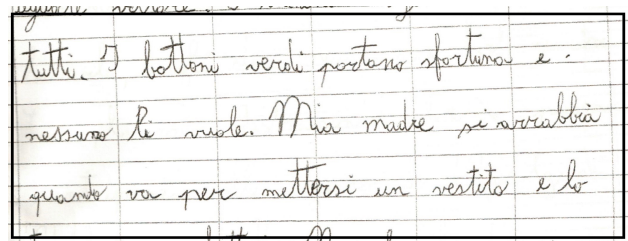 tutti. I bottoni verdi portano sfortuna e
nessuno li vuole. Mia madre si arrabbia
quando va per mettersi un vestito e lo